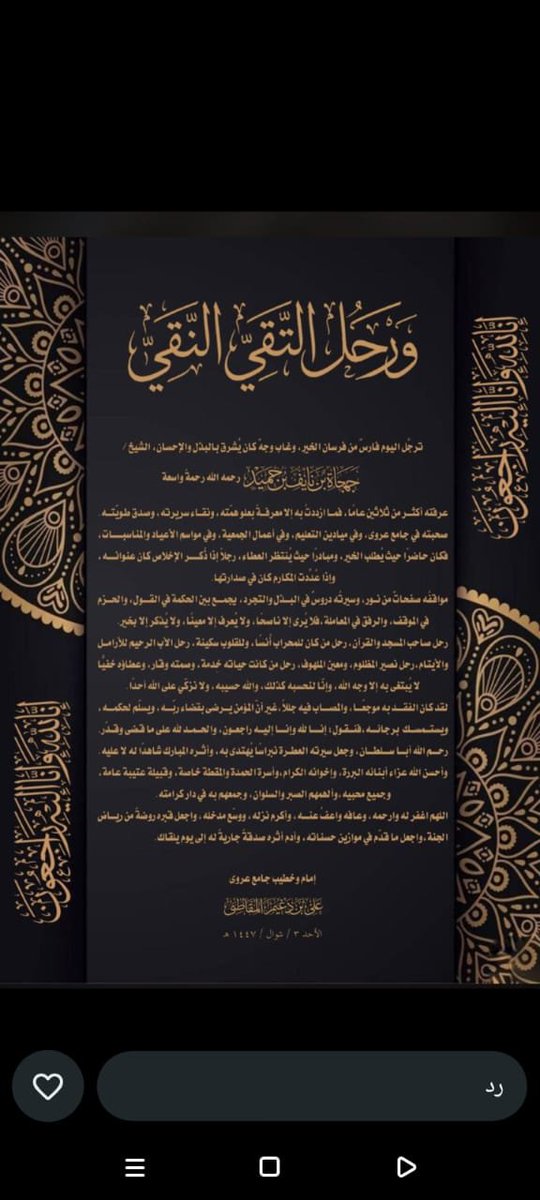 وَرَحَلَ التَّقِيُّ النَّقِيُّ
إنا لله وإنا إليه راجعون
ترجّل اليوم فارسٌ من فرسان الخير، وغاب وجهٌ كان يُشرق بالبذل والإحسان، الشيخ /
جهجاه بن نايف بن حميد رحمه الله رحمةً واسعة
عرفته أكثـر من ثلاثين عامًا، فمـا ازددتُ به إلا معرفـةً بعلو همّته، ونقـاء سريرته، وصدق طويّتـه
صحبته في جامع عروى، وفي ميادين التعليم، وفي أعمال الجمعية، وفي مواسم الأعياد والمناسبـات،
فكان حاضرًا حيث يُطلب الخير، ومبادرًا حيث يُنتظر العطاء، رجلًا إذا ذُكـر الإخلاص كان عنوانـه،
وإذا عُدّدت المكارم كان في صدارتها.
مواقفُه صفحاتٌ من نور، وسيرتُه دروسٌ في البـذل والتجرد، يجمـع بين الحكمة في القول، والحـزم
في الموقف، والرفق في المعاملة، فلا يُرى إلا ناصحًا، ولا يُعرف إلا معينًا، ولا يُذكر إلا بخير.
رجل صاحب المسجد والقرآن، رجل من كان للمحراب أُنسًا، وللقلوب سكينة، رجل الأب الرحيم للأرامل
والأيتام، رجل نصير المظلوم، ومعين الملهوف، رجل من كانت حياته خدمة، وسمته وقار، وعطاؤه خفيًّا
لا يُبتغى به إلا وجه الله، وإنّا لنحسبه كذلك، والله حسيبه، ولا نزكّي على الله أحدًا.
لقد كان الفقـد به موجعًا، والمصـاب فيه جللًا، غير أنّ المؤمن يـرضى بقضاء ربّـه، ويسلّم لحكمـه،
ويستمسـك برجائـه، فنقـول: إنـا لله وإنـا إليـه راجعـون، والحـمد لله على ما قضى وقـدّر.
رحـم الله أبـا سـلطـان، وجعل سيرته العطـرة نبراسًـا يُهتدى به، وأثـره المبارك شاهدًا له لا عليه.
وأحسن الله عزاء أبنائه البررة، وإخوانه الكرام، وأسرة الحمدة والمقطة خاصة، وقبيلة عتيبة عامة،
وجميع محبيه، وألهمهم الصبر والسلوان، وجمعهم به في دار كرامته.
اللهم اغفر له وارحمه، وعافه واعفُ عنـه، وأكرم نُزله، ووسّع مدخله، واجعل قبره روضةً من ريـاض
الجنة، واجعل ما قدّم في موازين حسناته، وأدم أثره صدقةً جاريةً له إلى يوم يلقاك.
إمام وخطيب جامع عروى
علي بن دغيم المقاطي
الأحد ٣ / شوال / ١٤٤٧ هـ
إنا لله وإنا إليه راجعون
رد